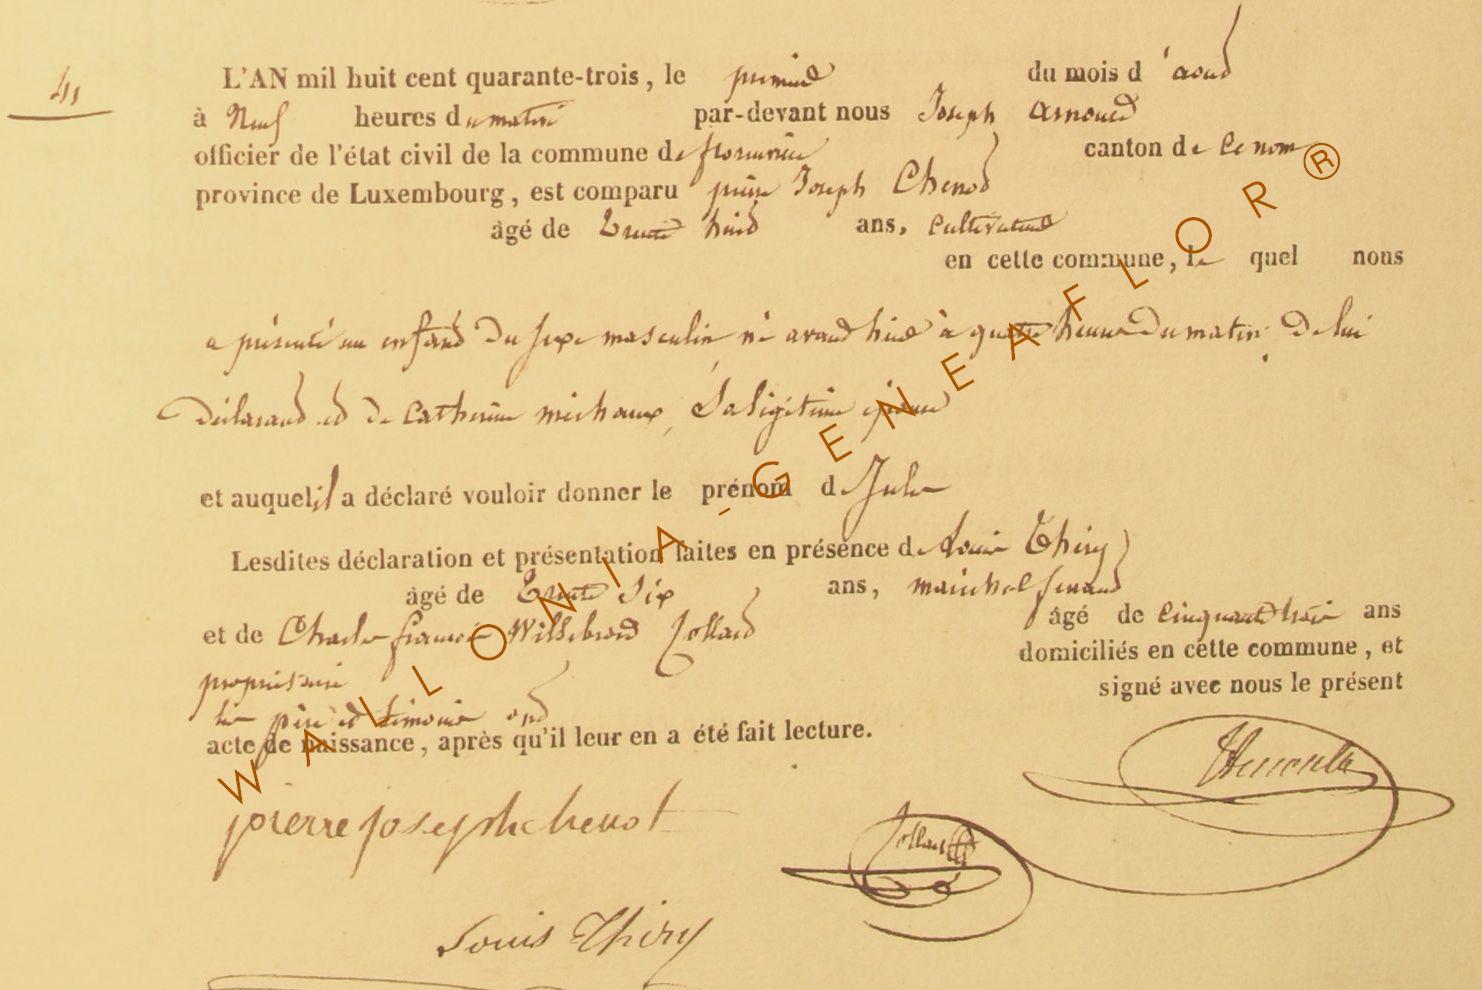 41
L'AN mil huit cent quarante-trois, le premier du mois d'aout
à Neuf heures du matin par-devant nous Joseph Arnould
officier de l'état civil de la commune de florenville canton de ce nom
province de Luxembourg, est comparu pierre Joseph Chenot
âgé de Trente huit ans, cultivateur
en cette commune, le quel nous
a présenté un enfant du sexe masculin né avant hier à quatre heures du matin de lui
déclarant et de Catherine michaux, Sa légitime épouse
et auquel il a déclaré vouloir donner le prénom de Jules
Lesdites déclaration et présentation faites en présence de Louis Thiry
âgé de Trente Six ans, maréchal ferrant
et de Charles françois Willebrord Jollard âgé de cinquante trois ans
propriétaire domiciliés en cette commune, et
les père et témoins ont signé avec nous le présent
acte de naissance, après qu'il leur en a été fait lecture.
pierre joseph chenot
Louis Thiry
WALLONIA-GENEAFLOR®